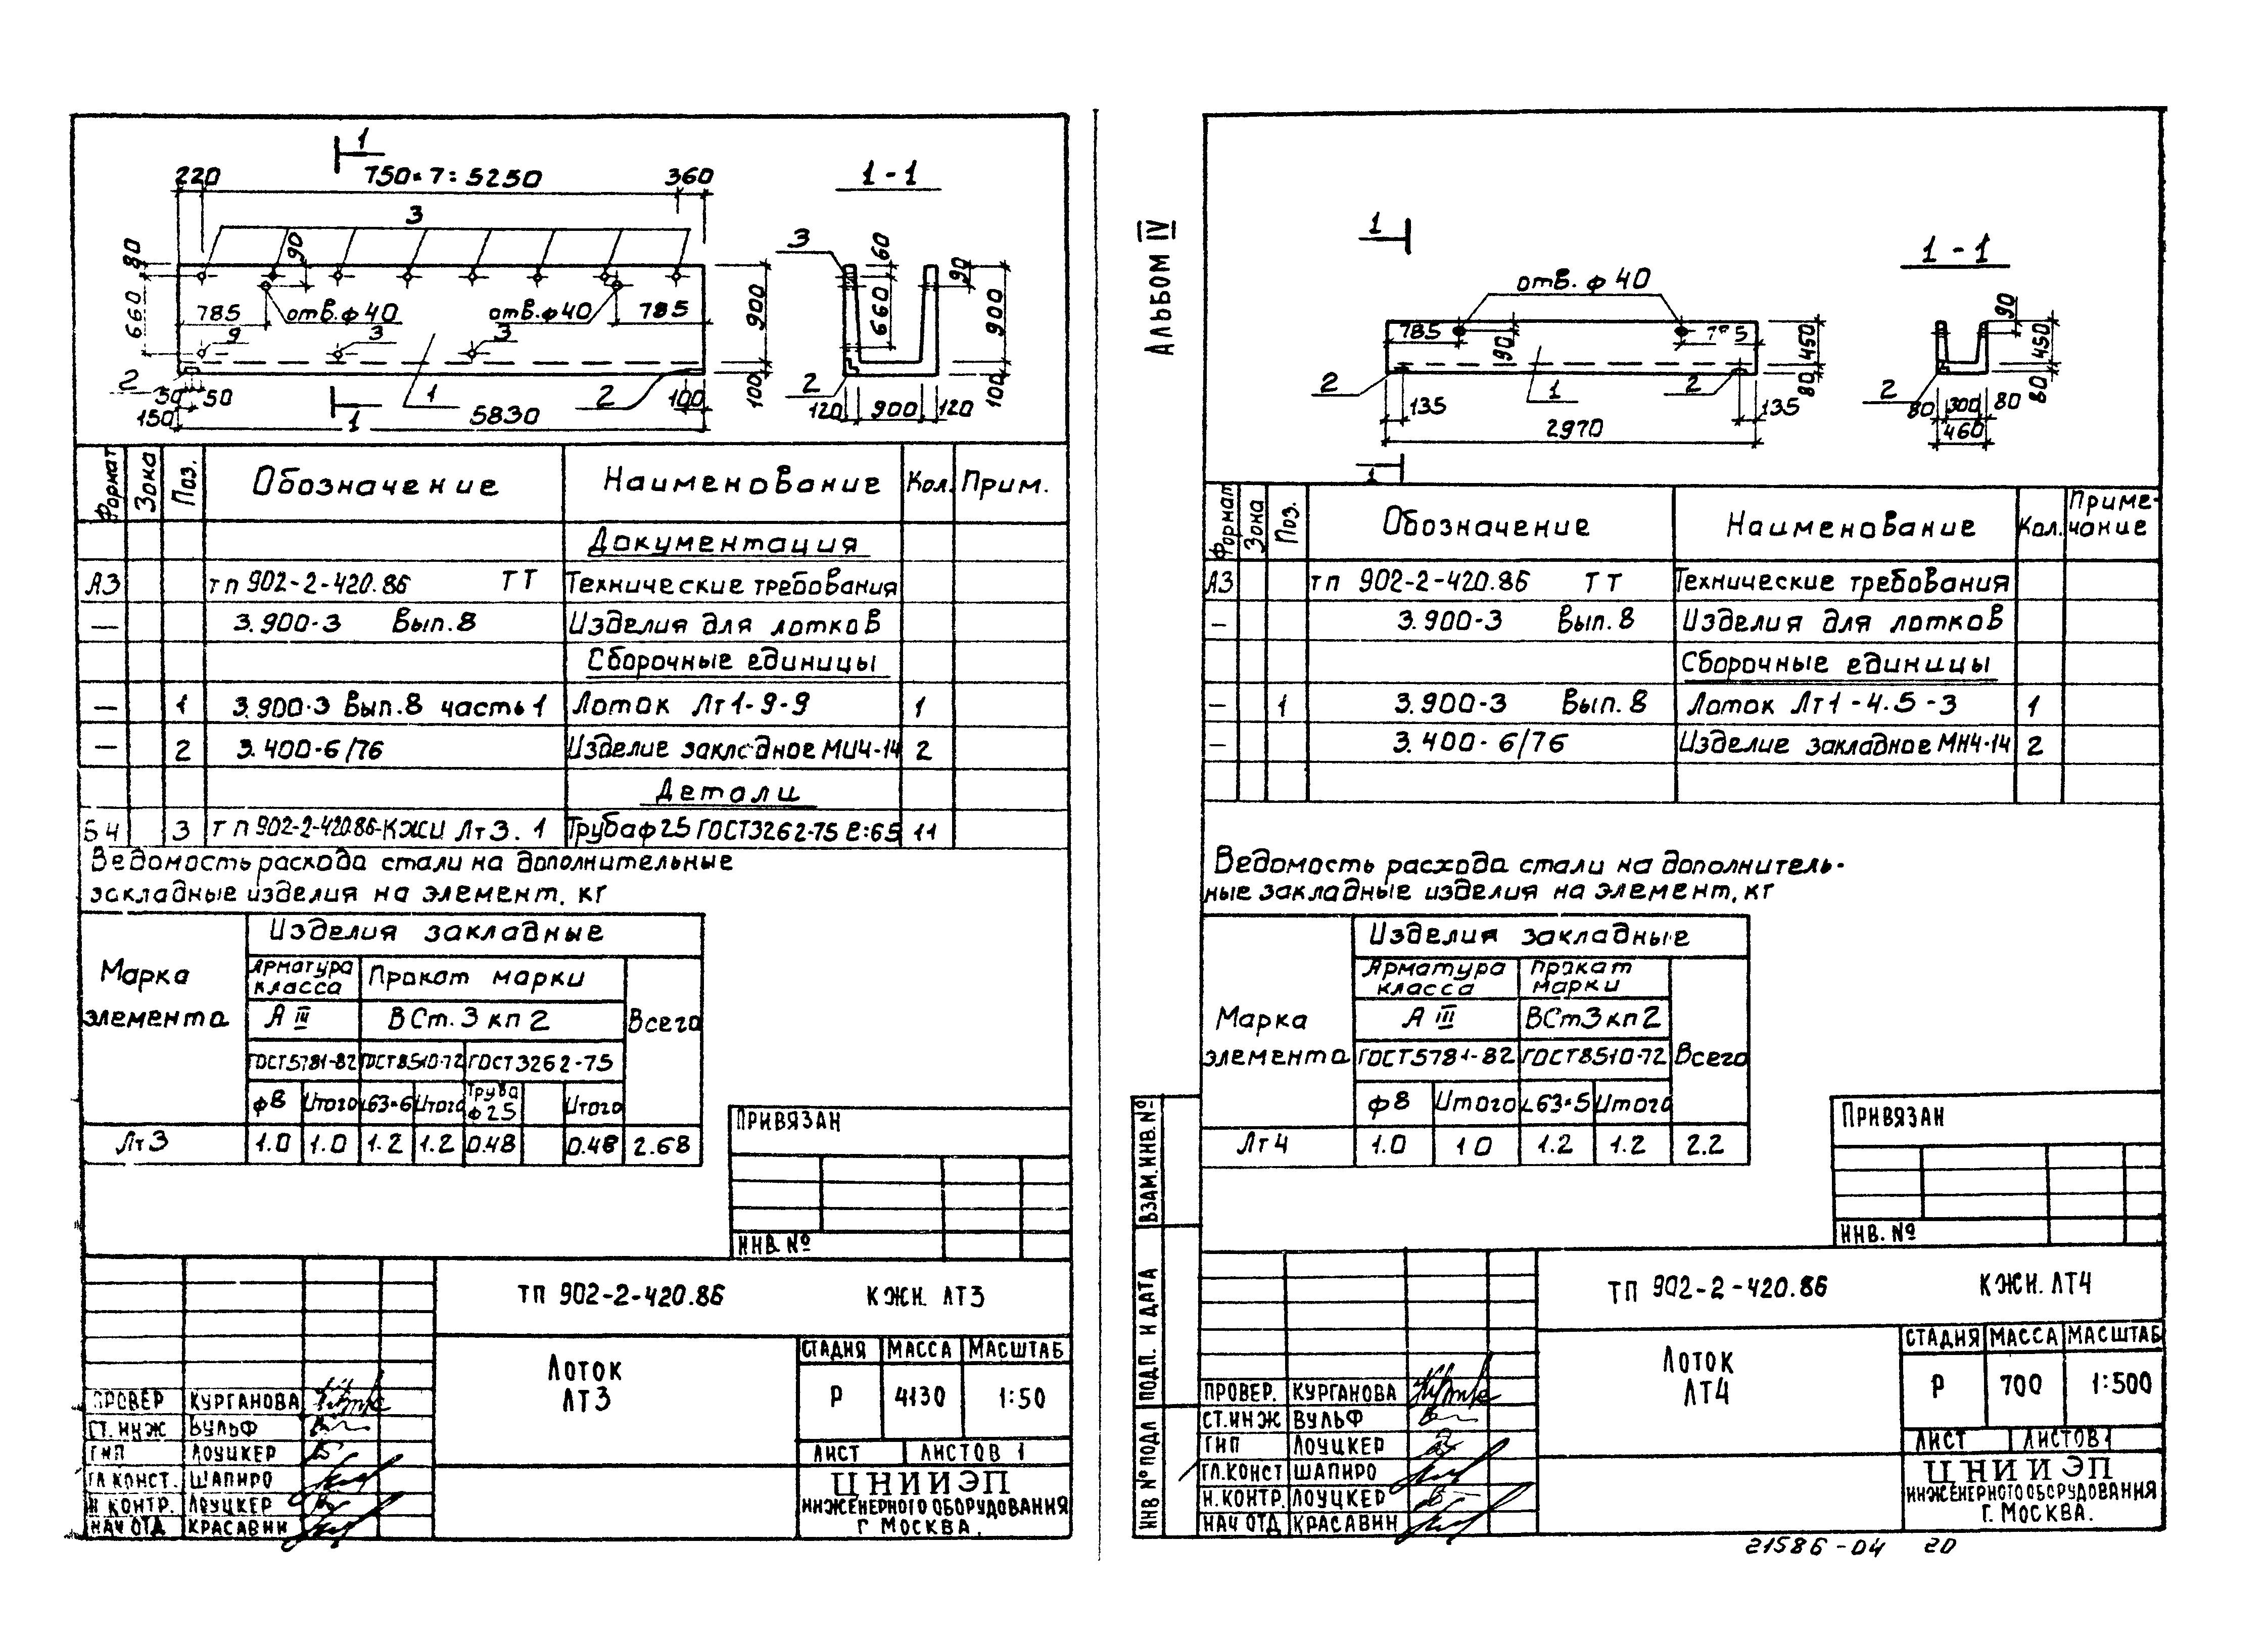 1
220 750×7=5250 360
1-1
3
80
90
660
785
отв.ф40
отв.ф40
785
9
3
3
900
100
2
50 50
150
1
1
5830
2
100
3
60
660
90
900
100
2
120 900 120
Формат
Зона
Поз.
Обозначение
Наименование
Кол.
Прим.
Документация
А3 тп 902-2-420.86 ТТ Технические требования
— 3.900-3 Вып.8 Изделия для лотков
Сборочные единицы
— 1 3.900-3 Вып.8 часть 1 Лоток Лт1-9-9 1
— 2 3.400-6/76 Изделие закладное МИ4-14 2
Детали
Б4 3 тп 902-2-420.86-КЖИ Лт3.1 Труба ф25 ГОСТ3262-75 ℓ=65 11
Ведомость расхода стали на дополнительные
закладные изделия на элемент, кг
Марка
элемента
Изделия закладные
Арматура
класса
Прокат марки
Всего
А III
ВСт.3кп2
ГОСТ5781-82
ГОСТ8510-72
ГОСТ3262-75
ф8 Итого L63×6 Итого Труба ф25 Итого
Лт3 1.0 1.0 1.2 1.2 0.48 0.48 2.68
ПРИВЯЗАН
ИНВ. №
ТП 902-2-420.86 КЖИ. ЛТ3
ЛОТОК
ЛТ3
СТАДИЯ МАССА МАСШТАБ
Р 4130 1:50
ЛИСТ ЛИСТОВ 1
ЦНИИЭП
ИНЖЕНЕРНОГО ОБОРУДОВАНИЯ
Г МОСКВА.
ПРОВЕР КУРГАНОВА
СТ. ИНЖ ВУЛЬФ
ГИП ЛОУЦКЕР
ГЛ.КОНСТ. ШАПИРО
Н КОНТР. ЛОУЦКЕР
НАЧ ОТД КРАСАВИН
АЛЬБОМ IV
1
1-1
отв. ф 40
785
90
450
80
2
1
2
135
135
2970
1
90
450
80
2
80 300 80
460
Формат
Зона
Поз.
Обозначение
Наименование
Кол.
Приме-
чание
А3 тп 902-2-420.86 ТТ Технические требования
— 3.900-3 Вып.8 Изделия для лотков
Сборочные единицы
— 1 3.900-3 Вып.8 Лоток Лт1-4.5-3 1
— 3.400-6/76 Изделие закладное МН4-14 2
Ведомость расхода стали на дополнитель-
ные закладные изделия на элемент, кг
Марка
элемента
Изделия закладные
Арматура
класса
Прокат
марки
Всего
А III
ВСт3кп2
ГОСТ5781-82
ГОСТ8510-72
ф8 Итого L63×5 Итого
Лт4 1.0 1 0 1.2 1.2 2.2
ПРИВЯЗАН
ИНВ. №
ВЗАМ.ИНВ.№
ПОДП. И ДАТА
ИНВ № ПОДЛ
ТП 902-2-420.86 КЖИ. ЛТ4
ЛОТОК
ЛТ4
СТАДИЯ МАССА МАСШТАБ
Р 700 1:500
ЛИСТ ЛИСТОВ 1
ЦНИИЭП
ИНЖЕНЕРНОГО ОБОРУДОВАНИЯ
Г. МОСКВА.
ПРОВЕР. КУРГАНОВА
СТ.ИНЖ ВУЛЬФ
ГИП ЛОУЦКЕР
ГЛ.КОНСТ ШАПИРО
Н.КОНТР. ЛОУЦКЕР
НАЧ ОТД КРАСАВИН
21586-04 20